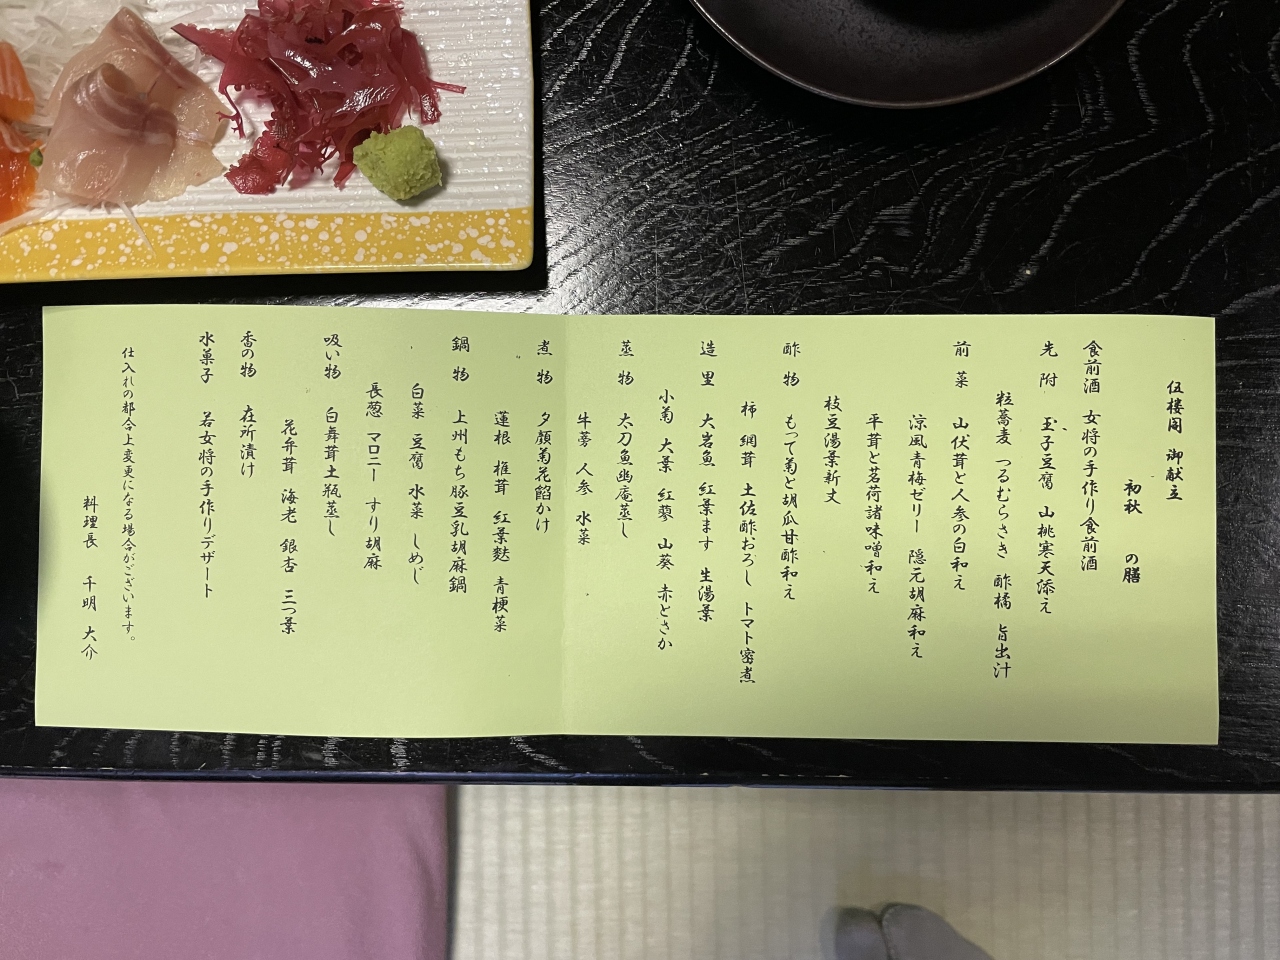 伍楼閣 御献立
初秋 の膳
食前酒 女将の手作り食前酒
先附 玉子豆腐 山桃寒天添え
粒蕎麦 つるむらさき 酢橘 旨出汁
前菜 山伏茸と人参の白和え
涼風青梅ゼリー 隠元胡麻和え
平茸と茗荷諸味噌和え
枝豆湯葉新丈
酢物 もって菊と胡瓜甘酢和え
柿 網茸 土佐酢おろし トマト蜜煮
造里 大岩魚 紅葉ます 生湯葉
小菊 大葉 紅蓼 山葵 赤とさか
蒸物 太刀魚幽庵蒸し
牛蒡 人参 水菜
煮物 夕顔菊花餡かけ
蓮根 椎茸 紅葉麩 青梗菜
鍋物 上州もち豚豆乳胡麻鍋
白菜 豆腐 水菜 しめじ
長葱 マロニー すり胡麻
吸い物 白舞茸土瓶蒸し
花弁茸 海老 銀杏 三つ葉
香の物 在所漬け
水菓子 若女将の手作りデザート
仕入れの都合上変更になる場合がございます。
料理長 千明 大介